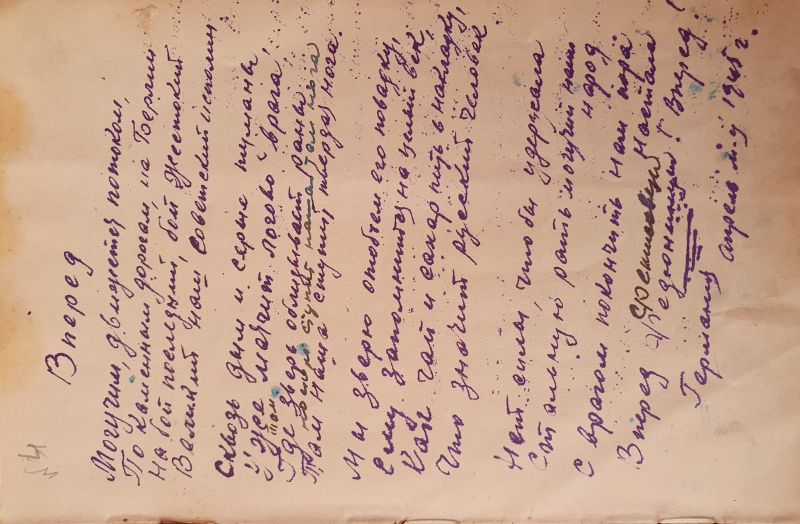 Вперед
Могучим движется потоком,
По каменным дорогам, на Берлин
На бой последний, бой жестокий
Великий наш советский исполин
Сквозь дым и серые туманы
Уже маячит логово врага,
Там
Где зверь облизывает раны
там нога
Там наша ступит твердая нога.
Мы зверю отобьем его повадку,
Ему запомнится на целый век,
Как чай и сахар пить в накладку,
Что значит русский человек.
Нет силы, чтобы удержала
Стальную рать могучий наш
народ
С врагом покончить нам пора
настала
Вперед Вперед!
Германия апрель м-ц 1945 г.